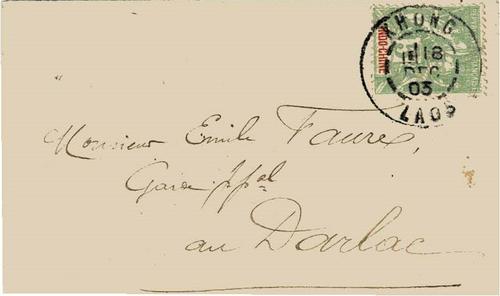 KHONG
18
DEC
03
LAOS
INDO-CHINE
Monsieur Emile Faure,
Garde ppal
au Darlac